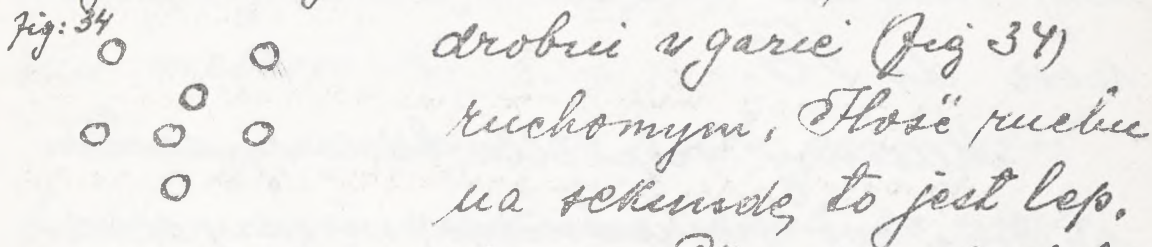 fig: 34
drobni w garie (fig 34)
ruchomym. Ilość ruchu
na sekundę to jest lep.